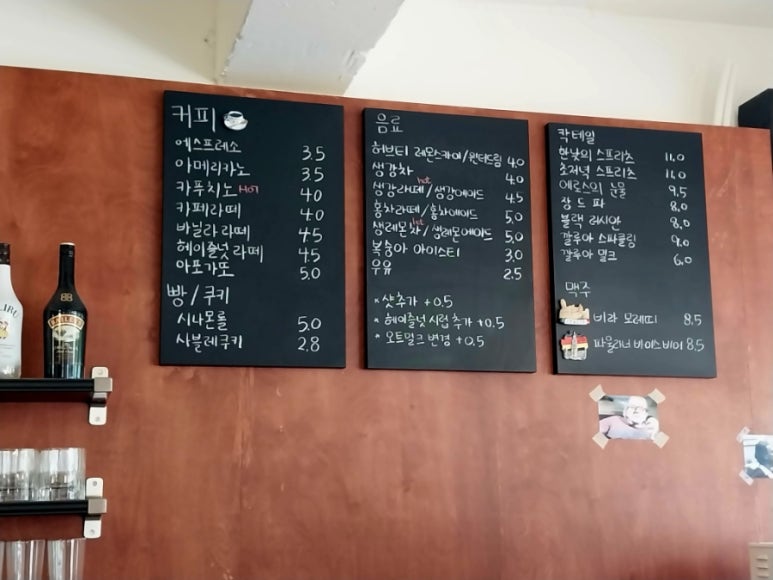 커피
에스프레소 3.5
아메리카노 3.5
카푸치노 HOT 4.0
카페라떼 4.0
바닐라 라떼 4.5
헤이즐넛 라떼 4.5
아포가또 5.0
빵 / 쿠키
시나몬롤 5.0
사블레쿠키 2.8
음료
허브티 레몬스카이/윈터드림 4.0
생강차 4.0
hot
생강라떼/생강에이드 4.5
홍차라떼/홍차에이드 5.0
hot
생레몬차/생레몬에이드 5.0
복숭아 아이스티 3.0
우유 2.5
* 샷추가 +0.5
* 헤이즐넛 시럽 추가 +0.5
* 오트밀크 변경 +0.5
칵테일
한낮의 스프리츠 11.0
초저녁 스프리츠 11.0
에로스의 눈물 9.5
장 드 파 8.0
블랙 러시안 8.0
깔루아 스파클링 9.0
깔루아 밀크 6.0
맥주
비라 모레띠 8.5
파울러너 바이스비어 8.5